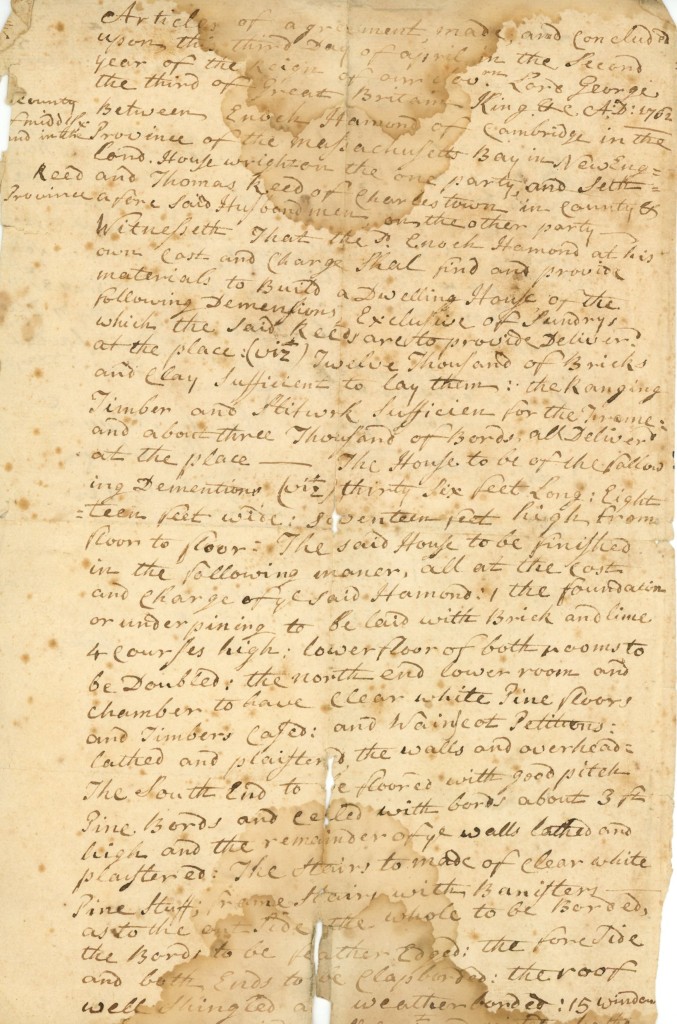 Articles of agriement, made, and Concluded
upon this third Day of april in the Second
year of the Reign of our Sovrn. Lord George
the third of Great Britain King &c. A,D: 1762
Between Enoch Hamond of Cambridge in the
County
of middx
and in the
Province of the massachusetts Bay in New Eng=
land. House wright on the one party, and Seth
Reed and Thomas Reed of Charlestown in County &
Province afore said Husbandmen on the other party
Witnesseth That the Sd. Enoch Hamond at his
own Cost and Charge Shal find and provide
materials to Build a Dwelling House of the
following Demensions Exclusive of Sundrys
which the said Reeds are to provide Deliverd
at the place: (viz) Twelve Thousand of Bricks
and Clay Sufficient to lay them: the Ranging
Timber and Slitwrk Sufficien for the Frame:
and about three Thousand of Bords: all Deliverd
at the place — The House to be of the follow
ing Dementions (vitz) thirty Six feet Long: Eight
=teen feet wide: seventeen feet high from
floor to floor: The said House to be finished
in the following maner, all at the Cost
and Charge of ye said Hamond: 1 the foundation
or underpining to be laid with Brick and lime
4 Courses high: lower floor of both rooms to
be Doubled: the north end lower room and
Chamber to have Clear white Pine floors
and Timbers Cased: and Wainscot Petitions:
lathed and plaistered the walls and overhead=
The South End to be floored with good pitch
Pine Bords and Ceiled with bords about 3 ft
high and the remainder of ye walls lathed and
plaistered: The Stairs to made of Clear white
Pine Stuff; frame Stairs with Banisters
as to the out Side the whole to be Borded,
the Bords to be feather Edged: the fore Side
and both Ends to be Clapborded: the roof
well Shingled and weatherborded: 15 window